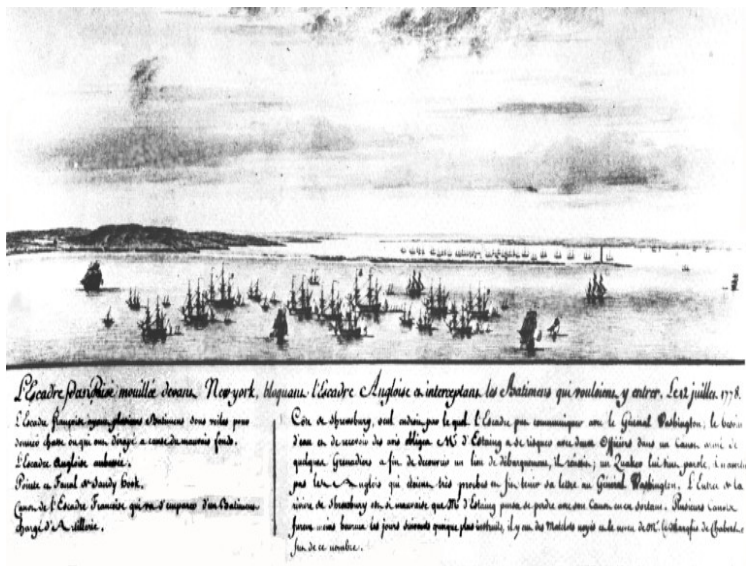 L'Escadre française mouillée devant New-york, bloquant l'Escadre Angloise et interceptant les Batimens qui vouloient y entrer. Le 12 juillet 1778.
L'Escadre françoise ayant plusieurs Batimens sous voiles pour
donner chasse
L'Escadre Angloise
Pointe et Fanal de Sandy Hook.
Canot de l'Escadre Francoise qui va s'emparer d'un Batiment
chargé d'Artillerie.
Côte de Shrewsbury, seul endroit par lequel l'Escadre put communiquer avec le Général Washington; le besoin
d'eau et de recevoir des avis obligea Mr. d'Estaing a se risquer avec deux Officiers dans un Canot armé de
quelques Grenadiers a fin de decouvrir un lieu de débarquement, il réussit; un Quaker lui tint parole,
pas les Anglois qui étoient très proches et fit tenir sa lettre au Général Washington. L'Entrée de la
riviere de Shrewsbury est si mauvaise que Mr d'Estaing pensa se perdre avec son Canot en en sortant. Plusieurs Canots
furent moins heureux les jours suivants quoique plus instruits, il y eut des Matelots noyés et le neveu de Mr. de Chabert
fut de ce nombre.